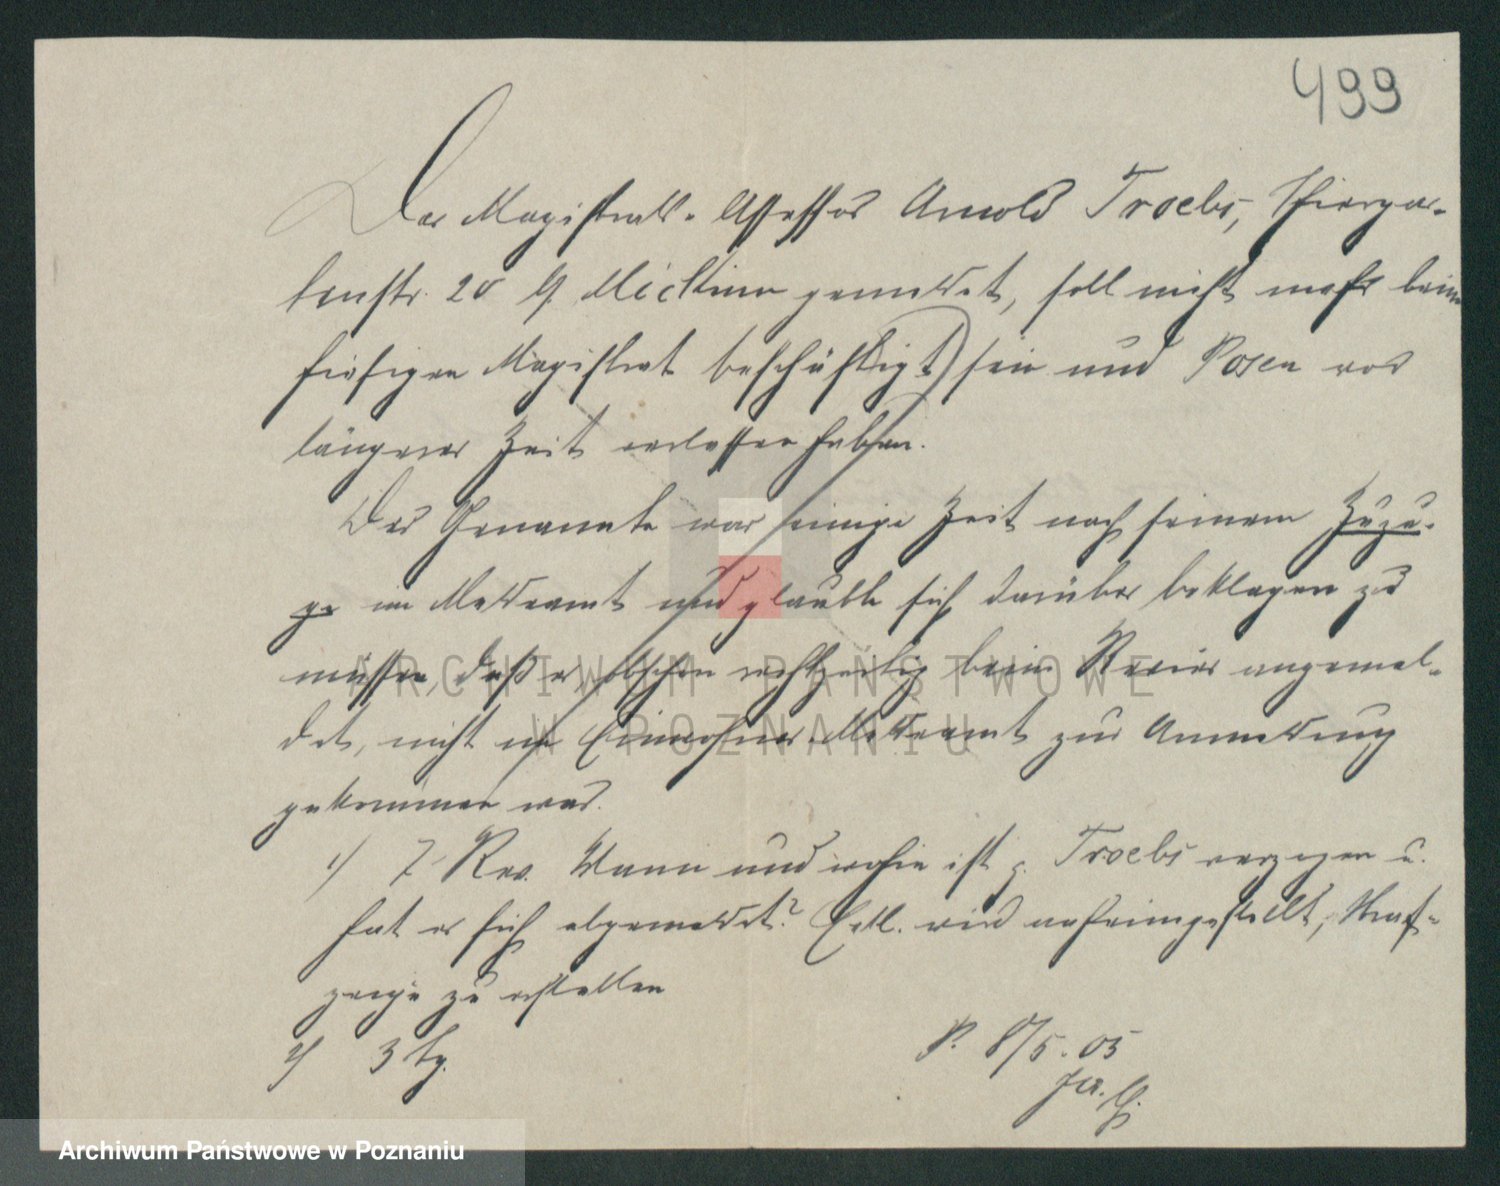 499
Der Magistrats-Assessor Arnold Troebs, Thiergar-
tenstr. 20 b. gemeldet, soll nicht mehr beim
hiesigen Magistrat beschäftigt sein und Posen vor
längerer Zeit verlassen haben.
Der Genannte war einige Zeit nach seinem Zuzu-
ge im Meldeamt und glaubte sich darüber beklagen zu
müssen, daß er, obschon rechtzeitig beim Revier angemel-
det, nicht im Einwohner-Meldeamt zur Anmeldung
gekommen war.
1) Z. Rev. Wann und wohin ist p. Troebs verzogen u.
hat er sich abgemeldet? Evtl. wird anheimgestellt, Straf-
zu erstatten
2) 3 Tg.
P. 8/5. 05
ARCHIWUM PAŃSTWOWE
W POZNANIU
Archiwum Państwowe w Poznaniu